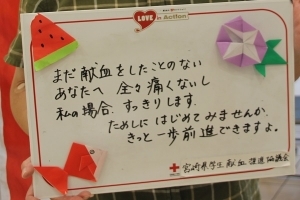 LOVE in Action
まだ献血をしたことのない
あなたへ 全々痛くないし
私の場合、すっきりします。
ためしに はじめてみませんか。
きっと一歩前進できますよ。
宮崎県学生献血推進協議会